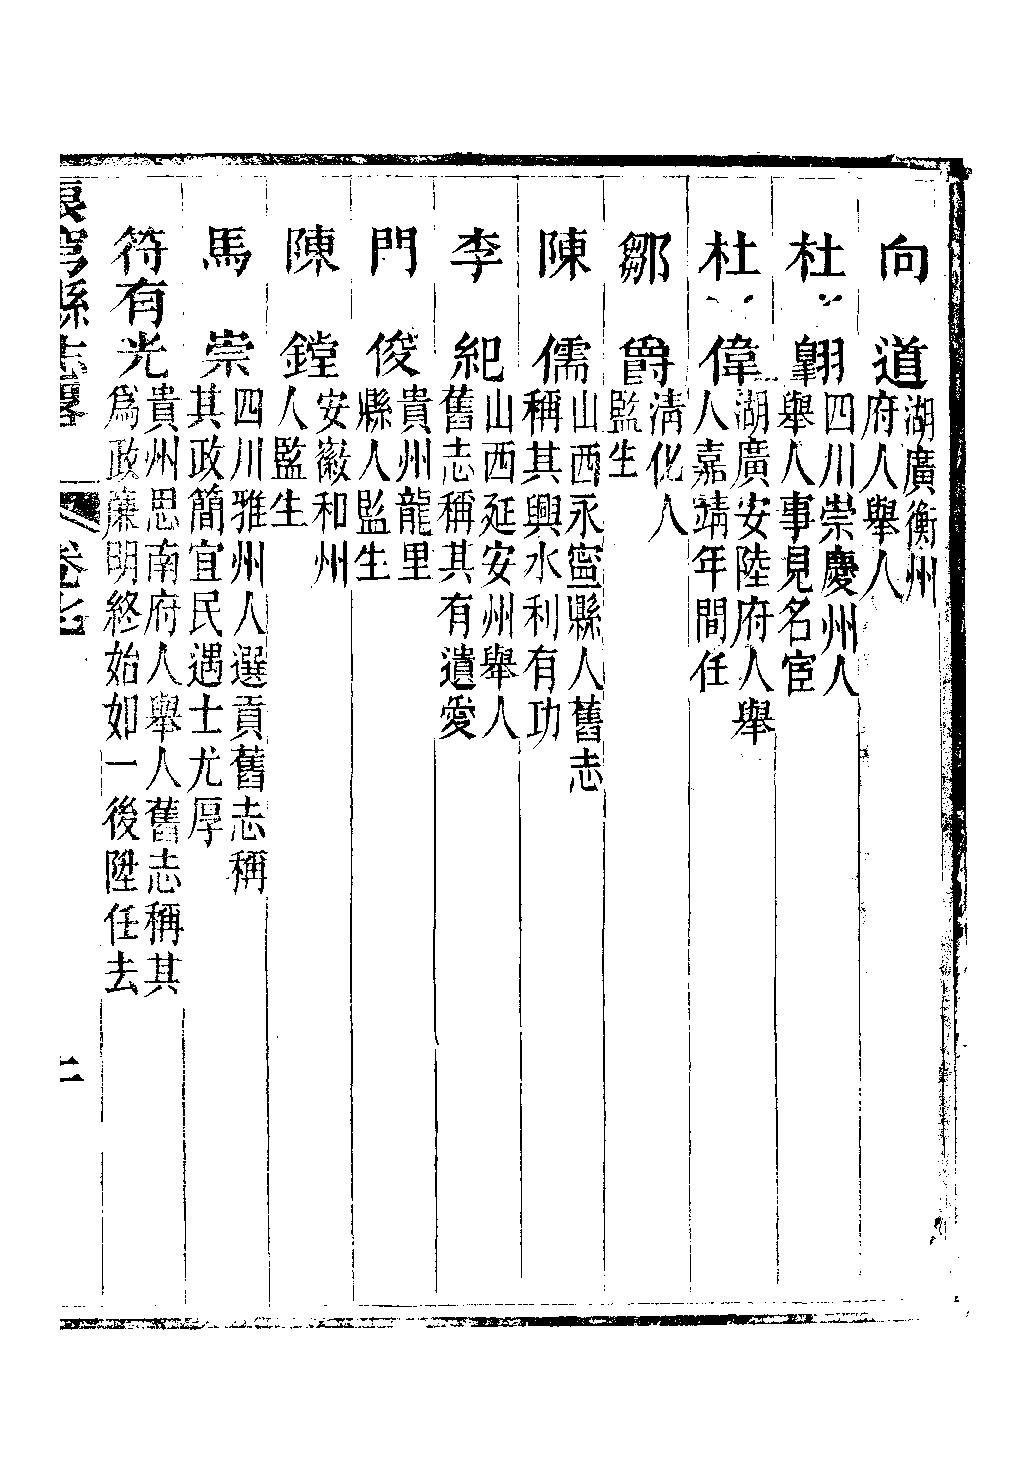 向道湖廣衡州
府人舉人
杜翺四川崇慶州人
舉人事見名宦
杜偉湖廣安陸府人舉
人嘉靖年間任
鄒爵清化人
監生
陳儒山西永寧縣人舊志
稱其興水利有功
李紀山西延安州舉人
舊志稱其有遺愛
門俊貴州龍里
縣人監生
陳鏜安徽和州
人監生
馬崇四川雅州人選貢舊志稱
其政簡宜民遇士尤厚
符有光貴州思南府人舉人舊志稱其
爲政廉明終始如一後陞任去
浪穹縣志畧 卷七 二